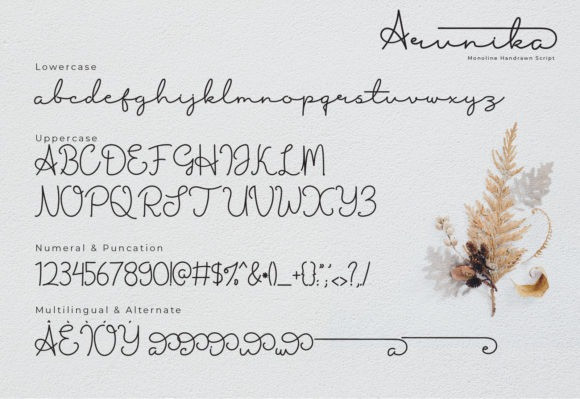 Arunika
Monoline Handrawn Script
Lowercase
abcdefghijklmnopqrstuvwxyz
Uppercase
ABCDEFGHIJKLM
NOPQRSTUVWXYZ
Numeral & Puncation
1234567890!@#$%^&*()_+{}:;"'<>?,/
Multilingual & Alternate